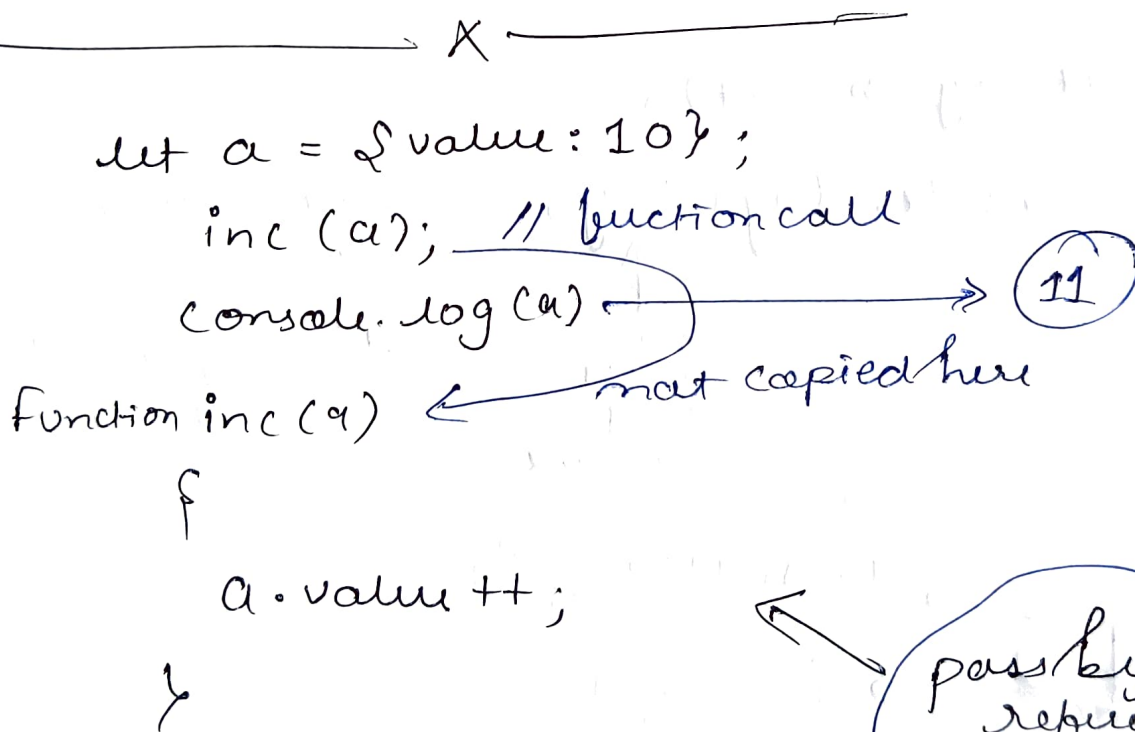 X
let a = {value: 10};
inc (a); // fuction call
console.log (a) → 11
not copied here
function inc (a)
{
a.value ++;
}
pass by